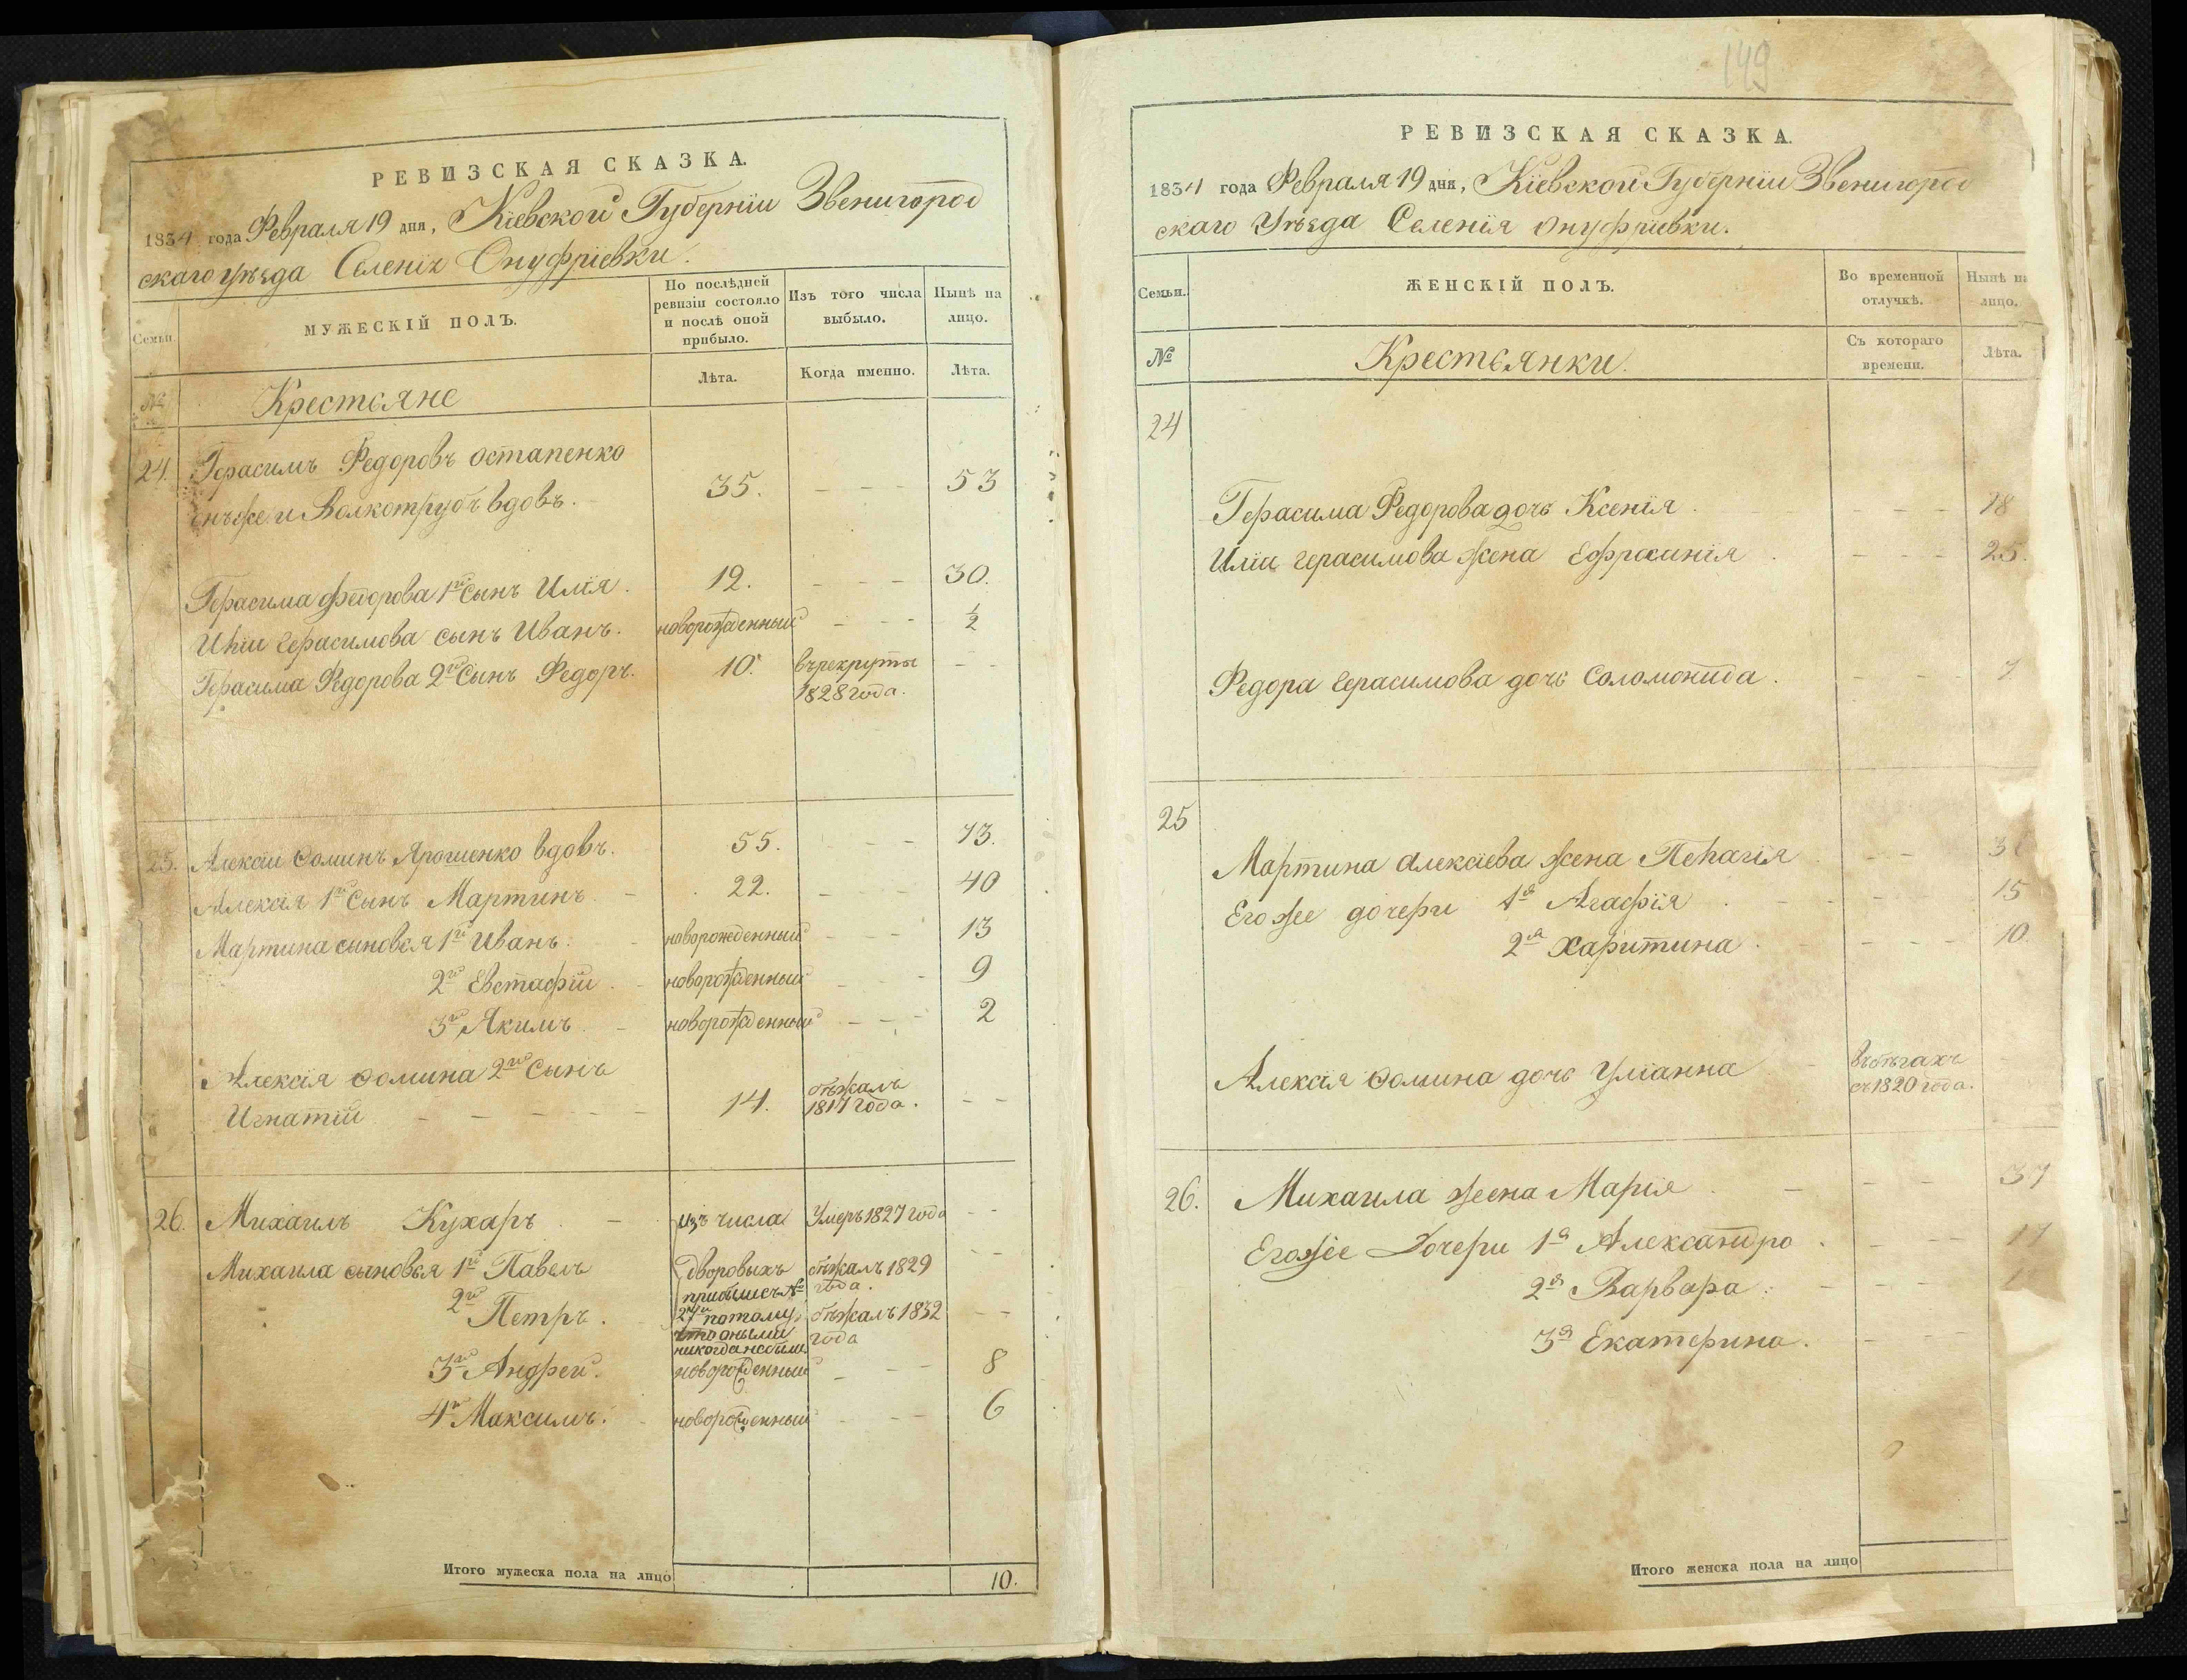 РЕВИЗСКАЯ СКАЗКА.
1834 года Февраля 19 дня, Кіевской Губерніи Звенигород
скаго уѣзда Селенія Онуфріевки.
Семьи.
МУЖЕСКІЙ ПОЛЪ.
По послѣдней ревизіи состояло и послѣ оной прибыло.
Изъ того числа выбыло.
Нынѣ на лицо.
№
Крестьяне
Лѣта.
Когда именно.
Лѣта.
24. Герасимъ Федоровъ Остапенко
онъ же и Волкотрубъ вдовъ. 35. - - - 53
Герасима Федорова 1й Сынъ Илія. 12. - - - 30.
Иліи Герасимова сынъ Иванъ. новорожденный - - - 1/2
Герасима Федорова 2й Сынъ Федоръ. 10. въ рекруты - -
1828 года.
25. Алексій Ѳоминъ Ярошенко вдовъ. 55. - - 73.
Алексія 1й Сынъ Мартинъ. 22. - - - 40
Мартина сыновья 1й Иванъ. новорожденный - - - 13
2й Евстафій новорожденный - - - 9
3й Якимъ новорожденный - - - 2
Алексія Ѳомина 2й Сынъ
Игнатій - - - - - 14. бѣжалъ 1817 года. - -
26. Михаилъ Кухаръ - изъ числа Умеръ 1827 года - -
Михаила сыновья 1й Павелъ дворовыхъ бѣжалъ 1829 года. - -
прибылые
2й Петръ. потому бѣжалъ 1832 года - -
что оными
никогда не были
3й Андрей. новорожденный - - - 8
4й Максимъ. новорожденный - - - 6
Итого мужеска пола на лицо 10.
149
РЕВИЗСКАЯ СКАЗКА.
1834 года Февраля 19 дня, Кіевской Губерніи Звенигород
скаго Уѣзда Селенія Онуфріевки.
Семьи.
ЖЕНСКІЙ ПОЛЪ.
Во временной отлучкѣ.
Нынѣ на лицо.
№
Крестьянки.
Съ котораго времени.
Лѣта.
24
Герасима Федорова дочь Ксенія - - - 18
Иліи Герасимова жена Ефросинія - - - 25.
Федора Герасимова дочь Соломонида. - - 7
25
Мартина Алексіева жена Пелагія - -
Его же дочери 1я Агафія - - - 15
2я Харитина - - - 10.
Алексія Ѳомина дочь Уліанна въ бѣгахъ
съ 1820 года.
26. Михаила жена Марія - - - 37
Его же Дочери 1я Александра - - - 17
2я Варвара. - - -
3я Екатерина. - - -
Итого женска пола на лицо